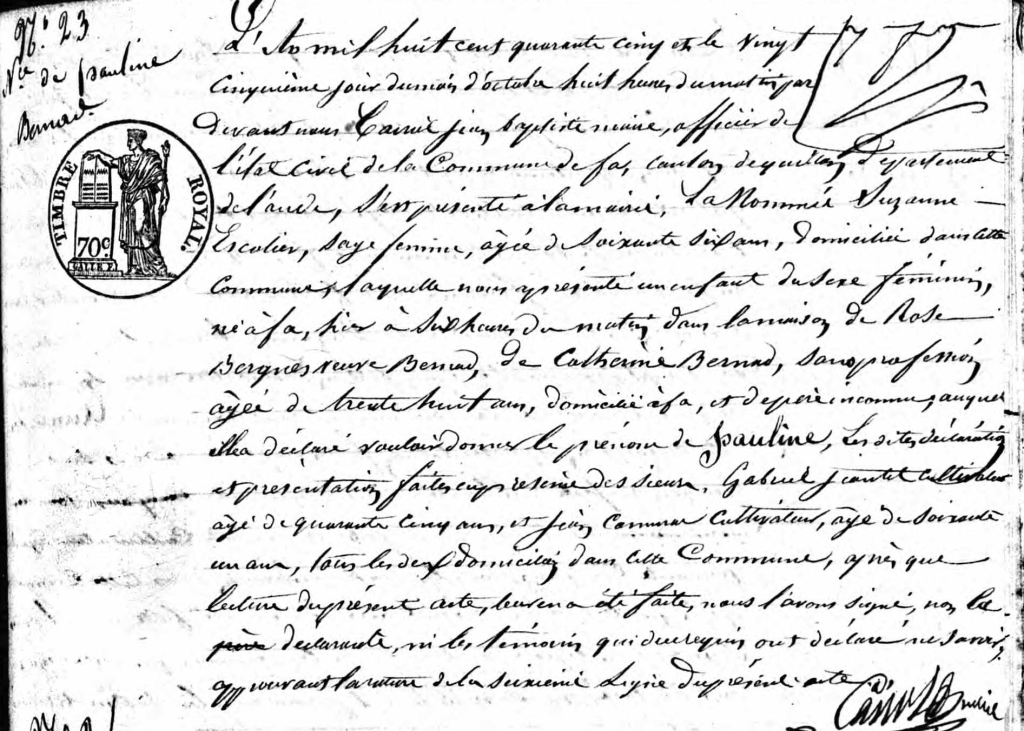 N.° 23
N.ce de pauline
Bernad.
TIMBRE ROYAL.
70c
L'An mil huit cent quarante cinq et le vingt
cinquième jour du mois d'octobre huit heures du matin par
devant nous jean baptiste maire, officier de
l'état civil de la Commune de fa, canton de quillan, département
de l'aude, s'est présenté à la mairie, La Nommée Suzanne
Escolier, sage femme, âgée de soixante six ans, domiciliée dans cette
commune, laquelle nous a présenté un enfant du sexe féminin,
né à fa, hier à six heures du matin dans la maison de Rose
Bergnes veuve Bernad, de Catherine Bernad, sans profession
âgée de trente huit ans, domicilié à fa, et de père inconnu, auquel
elle a déclaré vouloir donner le prénom de pauline, Les dites déclaration
et présentation faites en présence des sieurs, Gabriel cultivateur
âgé de quarante cinq ans, et jean cultivateur, âgé de soixante
un ans, tous les deux domiciliés dans cette Commune, après que
lecture du présent acte, leur en a été faite, nous l'avons signé, non la
père déclarante, ni les témoins qui de ce requis ont déclaré ne savoir,
approuvant la rature de la seizième Ligne du présent acte
maire